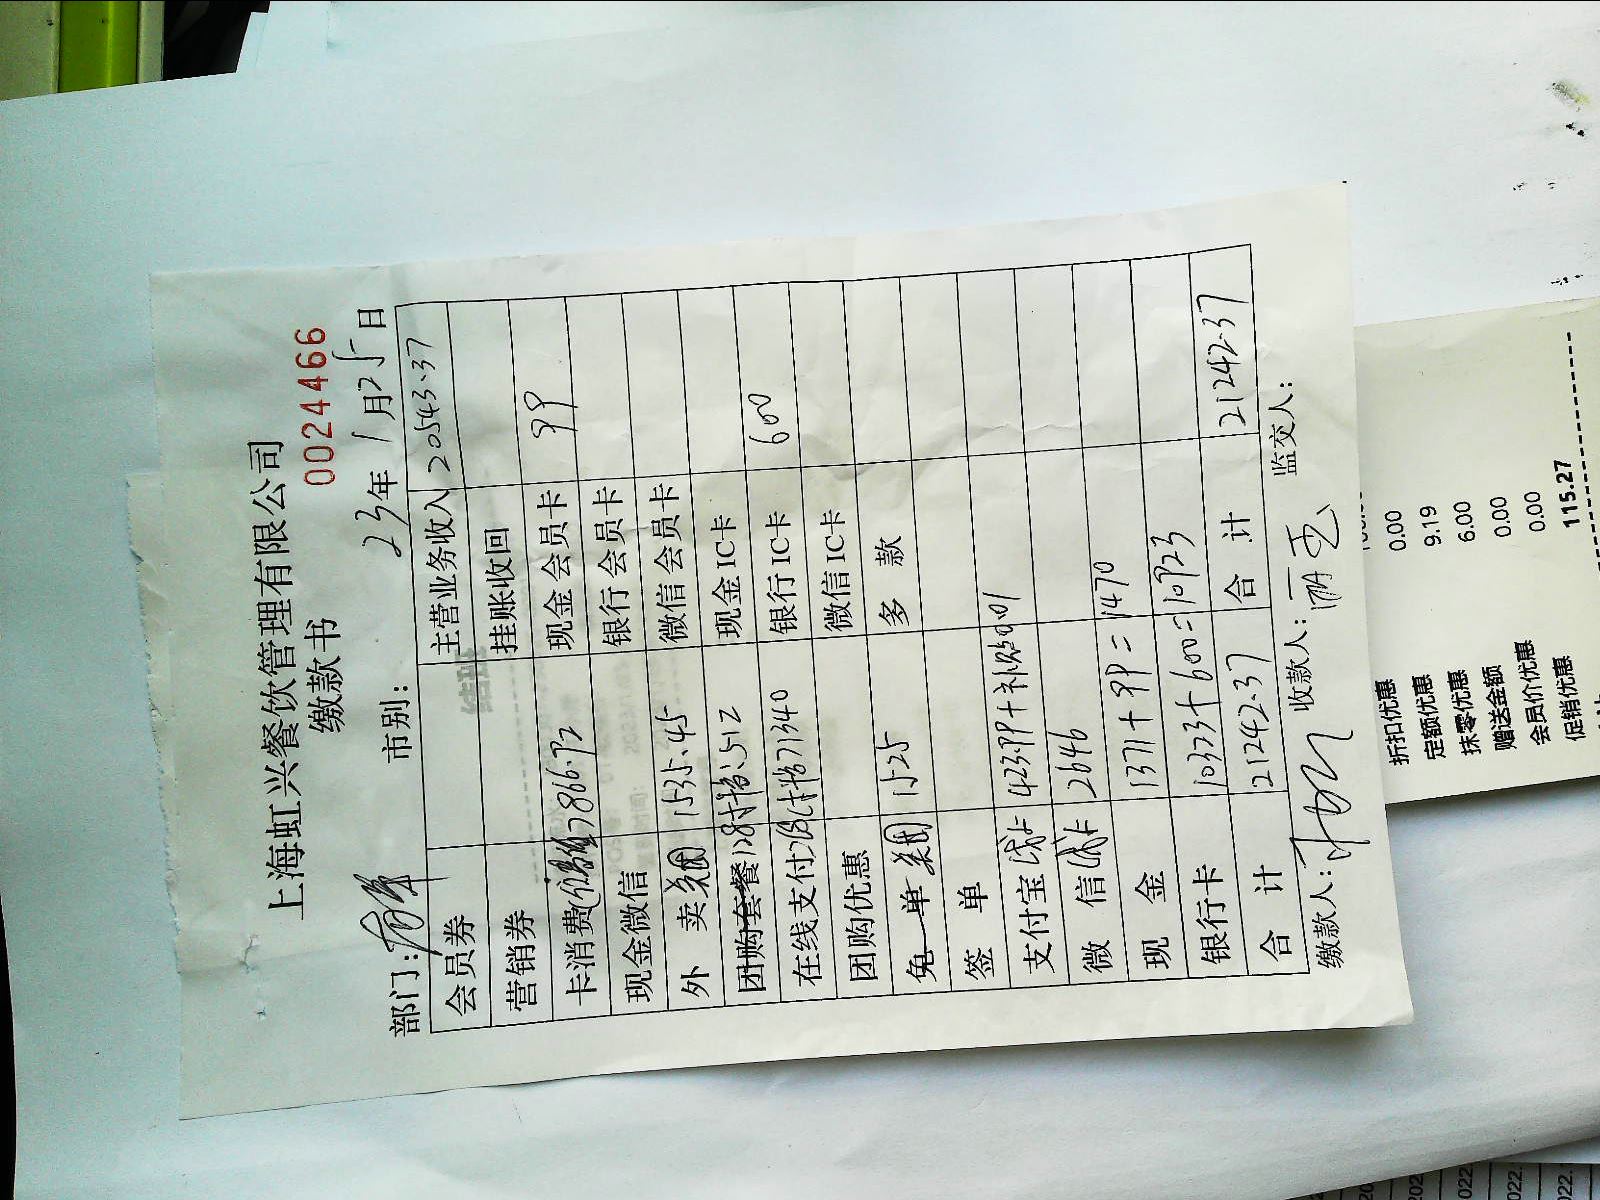 上海虹兴餐饮管理有限公司
缴款书
0024466
部门:
市别:
23年1月25日
会员券
主营业务收入 20543.37
营销券
挂账收回
卡消费(储值) 2866.92
现金会员卡 99
现金微信
银行会员卡
外 卖 美团 1535.45
微信会员卡
团购套餐
现金IC卡
在线支付
银行IC卡 600
团购优惠
微信IC卡
免单 美团 1525
多 款
签 单
支付宝
微 信 2646
现 金 1371+99=1470
银行卡 10323+600=10923
合 计 21242.37
合 计 21242.37
缴款人:
收款人:
监交人:
折扣优惠 0.00
定额优惠 9.19
抹零优惠 6.00
赠送金额 0.00
会员价优惠 0.00
促销优惠 115.27